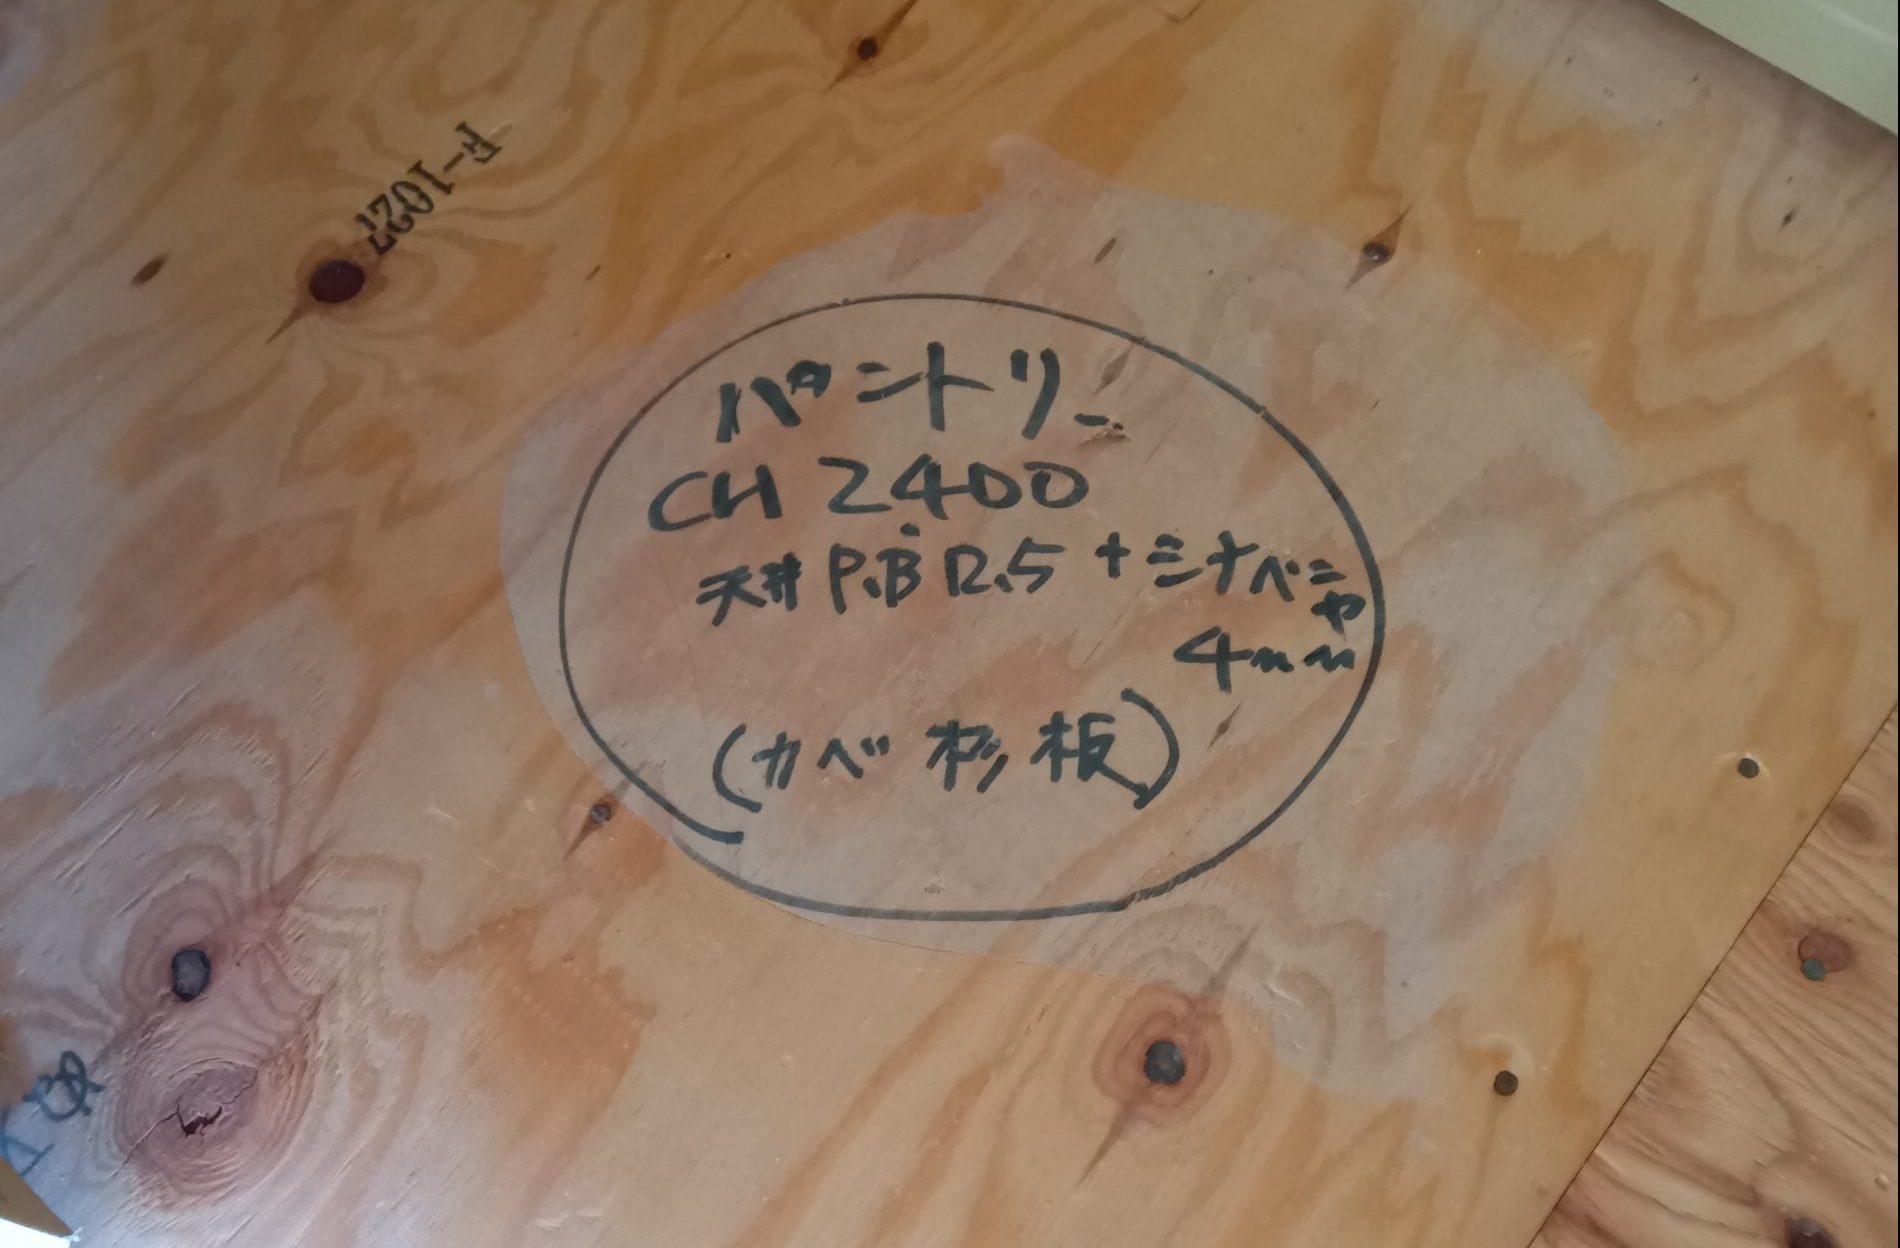 F-1027
パントリー
CH 2400
天井 P.B 12.5 +シナベニヤ
4mm
(カベ 杉板)